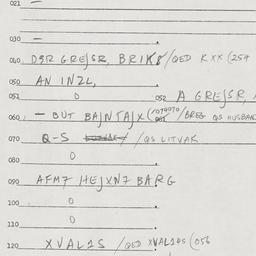 021 —
030 —
040 DER GREJSR, BRIK /QED KXX (254
050 AN INZL,
051 0 052 A GREJSR,
060 — BUT BAJNTAJX (/BREG QS HUSBAN
070 Q-S /QS LITVAK
080 0
090 AFM7 HEJXN7 BARG
100 0
110 0
120 XVAL1S /QED XVAL1ES (056